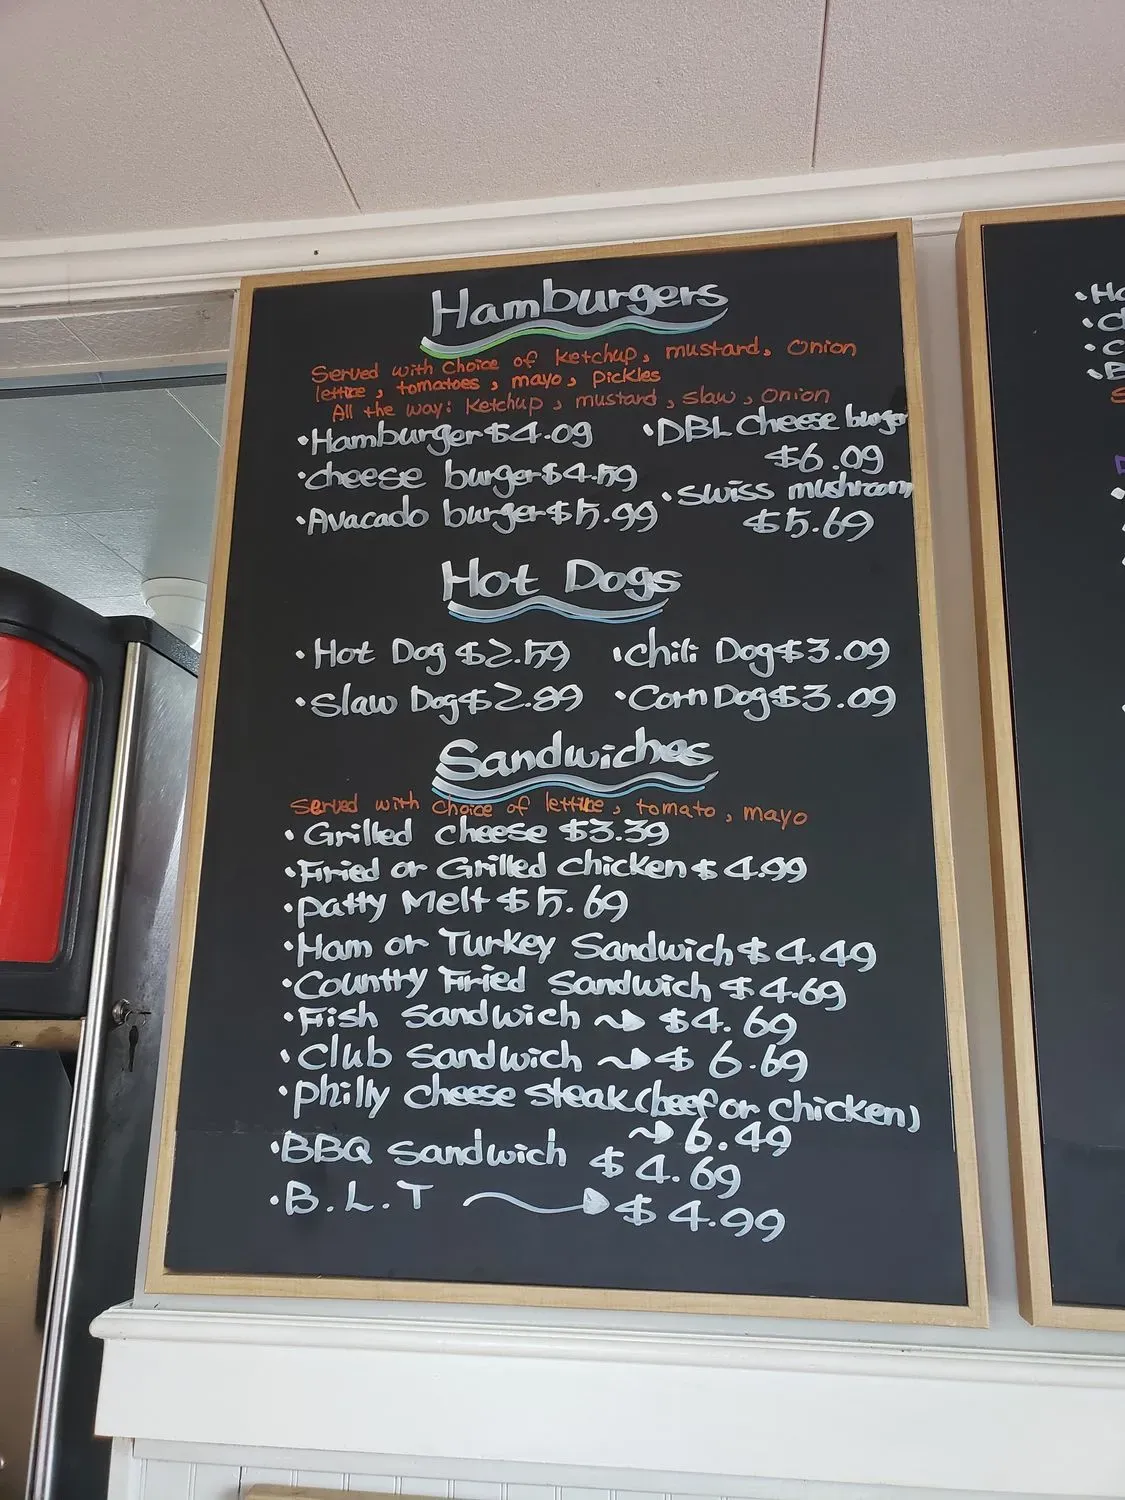 Hamburgers
Served with choice of ketchup, mustard, onion
lettuce, tomatoes, mayo, pickles
All the way: ketchup, mustard, slaw, onion
•Hamburger $4.09
•cheese burger $4.59
•Avacado burger $5.99
•DBL cheese burger
$6.09
•Swiss mushroom
$5.69
Hot Dogs
•Hot Dog $2.59
•Chili Dog $3.09
•Slaw Dog $2.89
•Corn Dog $3.09
Sandwiches
Served with choice of lettuce, tomato, mayo
•Grilled cheese $3.39
•Fried or Grilled chicken $4.99
•Patty Melt $5.69
•Ham or Turkey Sandwich $4.49
•Country Fried Sandwich $4.69
•Fish Sandwich → $4.69
•Club Sandwich → $6.69
•Philly cheese steak (beef or chicken)
→ 6.49
•BBQ Sandwich $4.69
•B.L.T → $4.99